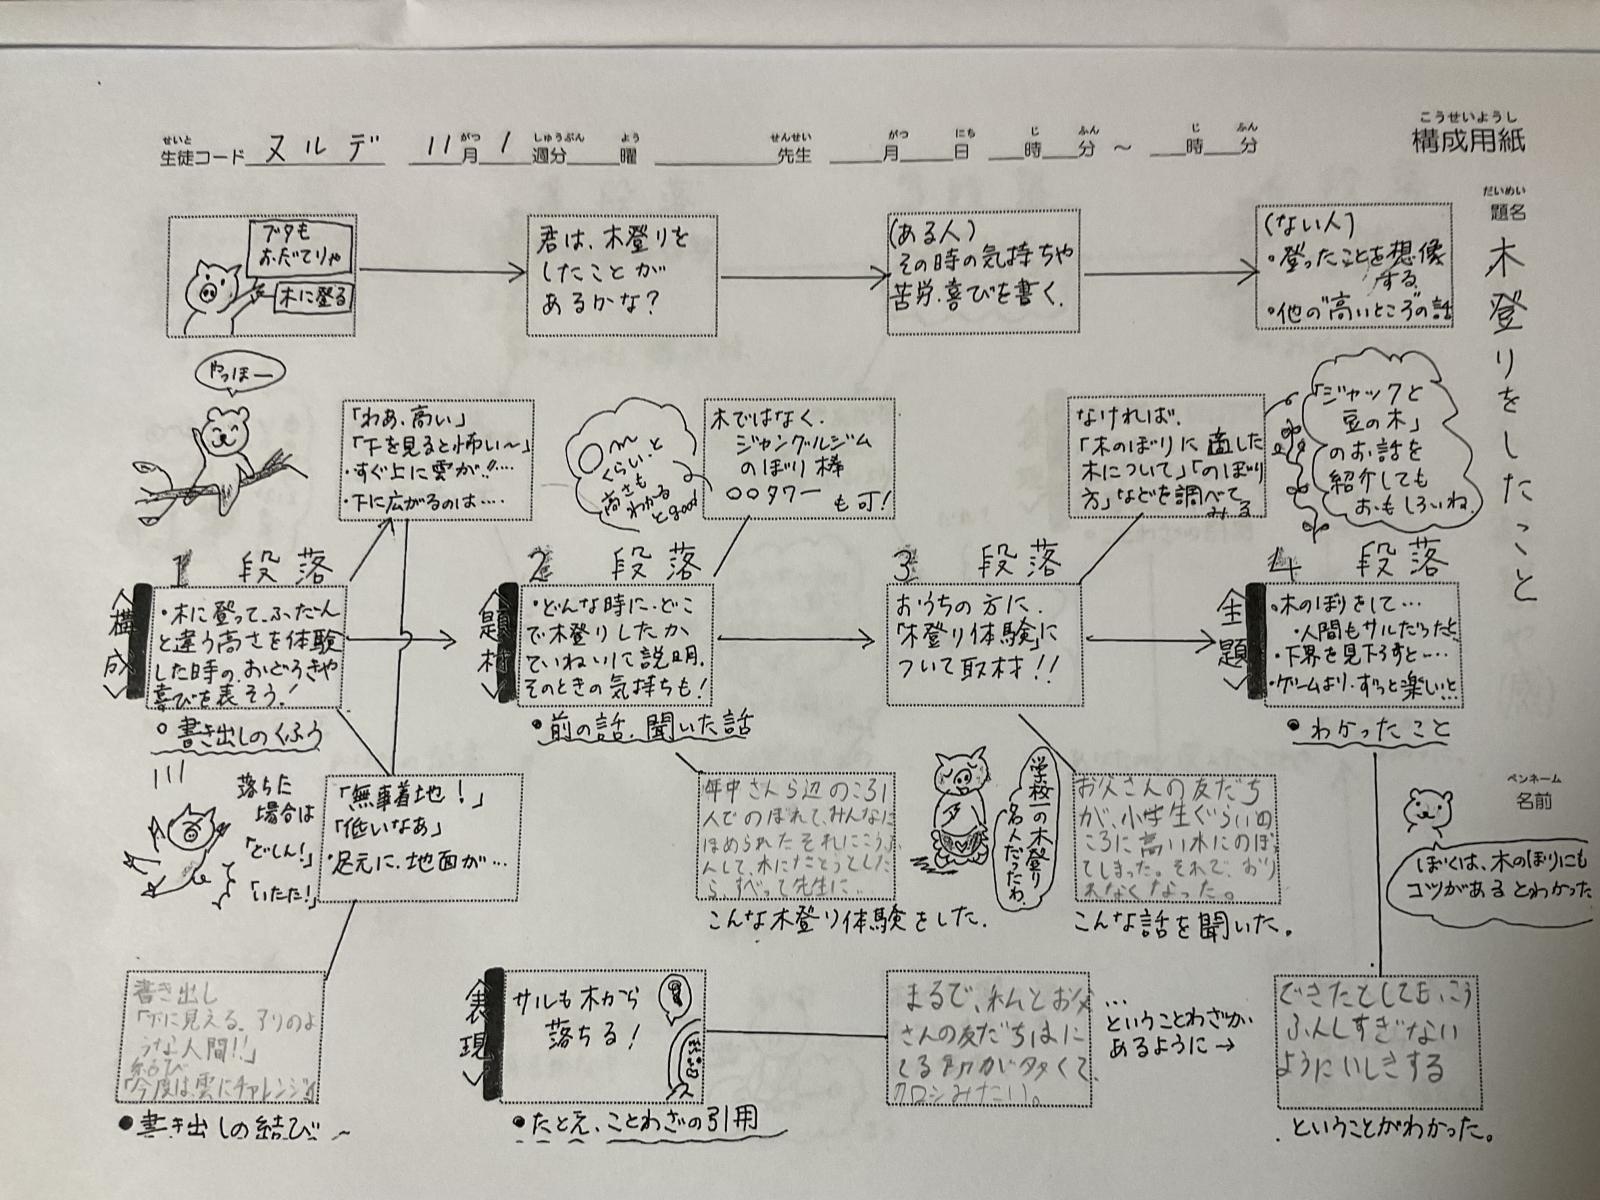 構成用紙
こうせいようし
生徒コード ヌルデ 11月1週分 曜 先生 月 日 時 分 ～ 時 分
せいと がつ しゅうぶん よう せんせい がつ にち じ ふん じ ふん
題名
だいめい
木登りをしたこと
ブタも
おだてりゃ
木に登る
君は、木登りを
したことが
あるかな?
(ある人)
その時の気持ちや
苦労、喜びを書く.
(ない人)
・登ったことを想像
する.
・他の"高いところ"の話
やっほー
「わあ、高い」
「下を見ると怖い～」
・すぐ上に雲が!!…
・下に広がるのは….
○m
くらい、と
高さも
わかる
とgood
木ではなく、
ジャングルジム
のぼり棒
○○タワー
も可!
なければ、
「木のぼりに適した
木について」「のぼり
方」などを調べて
みる
「ジャックと
豆の木」
のお話を
紹介しても
おもしろいね.
1 段落
2 段落
3 段落
4 段落
<構成>
・木に登って、ふだん
と違う高さを体験
した時の、おどろきや
喜びを表そう!
○書き出しのくふう
<題材>
・どんな時に、どこ
で木登りしたか
ていねいに説明.
そのときの気持ちも!
●前の話、聞いた話
おうちの方に、
「木登り体験」に
ついて取材!!
<主題>
・木のぼりをして…
・人間もサルだったと…
・下界を見下ろすと…
・ゲームより、ずっと楽しいと…
●わかったこと
落ちた
場合は
「どしん!」
「いたた!」
「無事着地!」
「低いなあ」
・足元に、地面が…
年中さんら辺のころ1
人でのぼれて、みんなに
ほめられた それにこうふ
んして、木にたとうとした
ら、すべって先生に…
こんな木登り体験をした.
学校一の木登り
名人だったわ.
お父さんの友だち
が、小学生ぐらいの
ころに高い木にのぼ
てしまった。それで、おり
れなくなった。
こんな話を聞いた。
ペンネーム
名前
ぼくは、木のぼりにも
コツがあるとわかった
書き出し
「下に見える、アリのよ
うな人間!!」
結び
「今度は雲にチャレンジ」
●書き出しの結び～
<表現>
サルも木から
落ちる!
●たとえ、ことわざの引用
まるで、れんとお父
さんの友だちはに
てる所が多くて、
クローンみたい。
…
ということわざが
あるように→
できたとしても、こう
ふんしすぎない
ようにいしきする
ということがわかった。